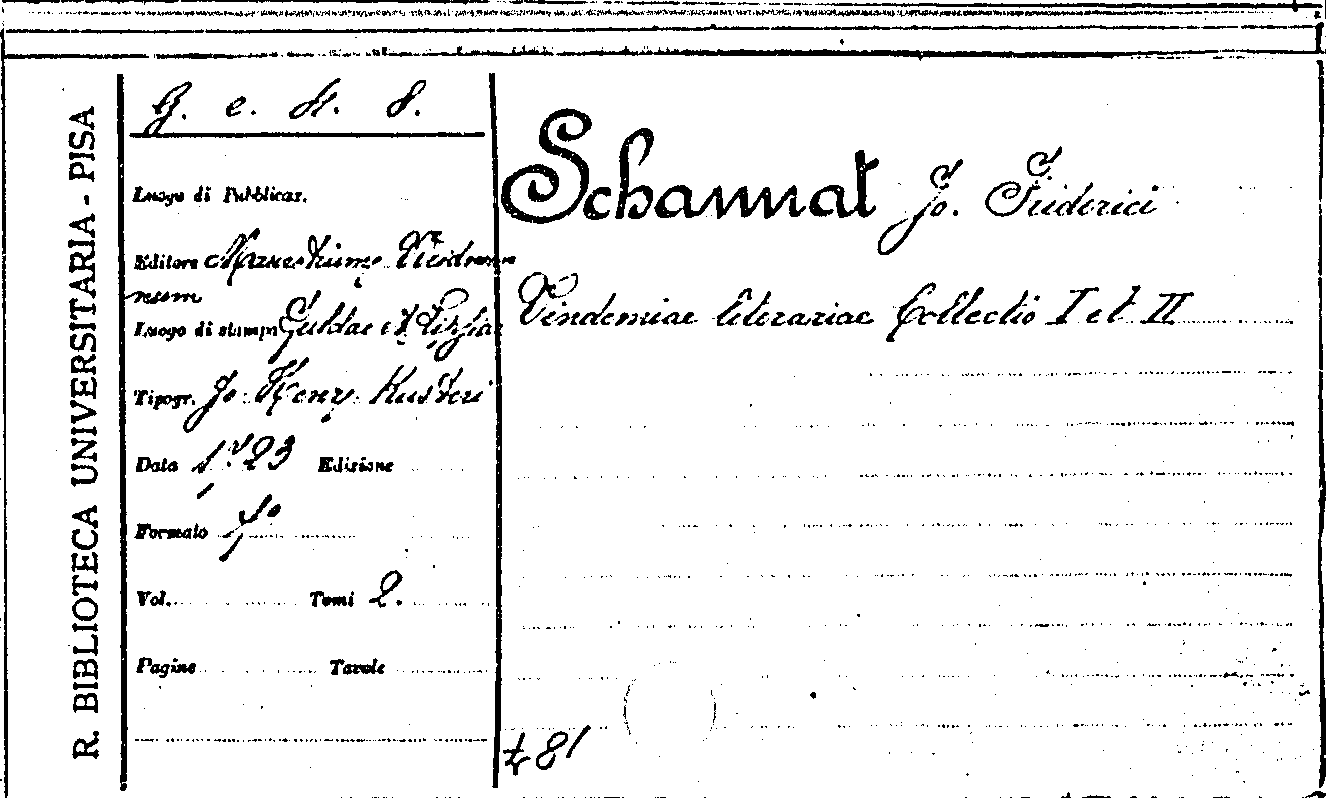 R. BIBLIOTECA UNIVERSITARIA - PISA
G. e. 8.
Luogo di Pubblicaz.
Editore
num
Luogo di stampa Fuldae et Lipsiae
Tipogr. Jo. Henr. Kusteri
Data 1723 Edizione
Formato fº
Vol. Tomi 2.
Pagine Tavole
Schannat Jo. Friderici
Vindemiae literariae Collectio I et II